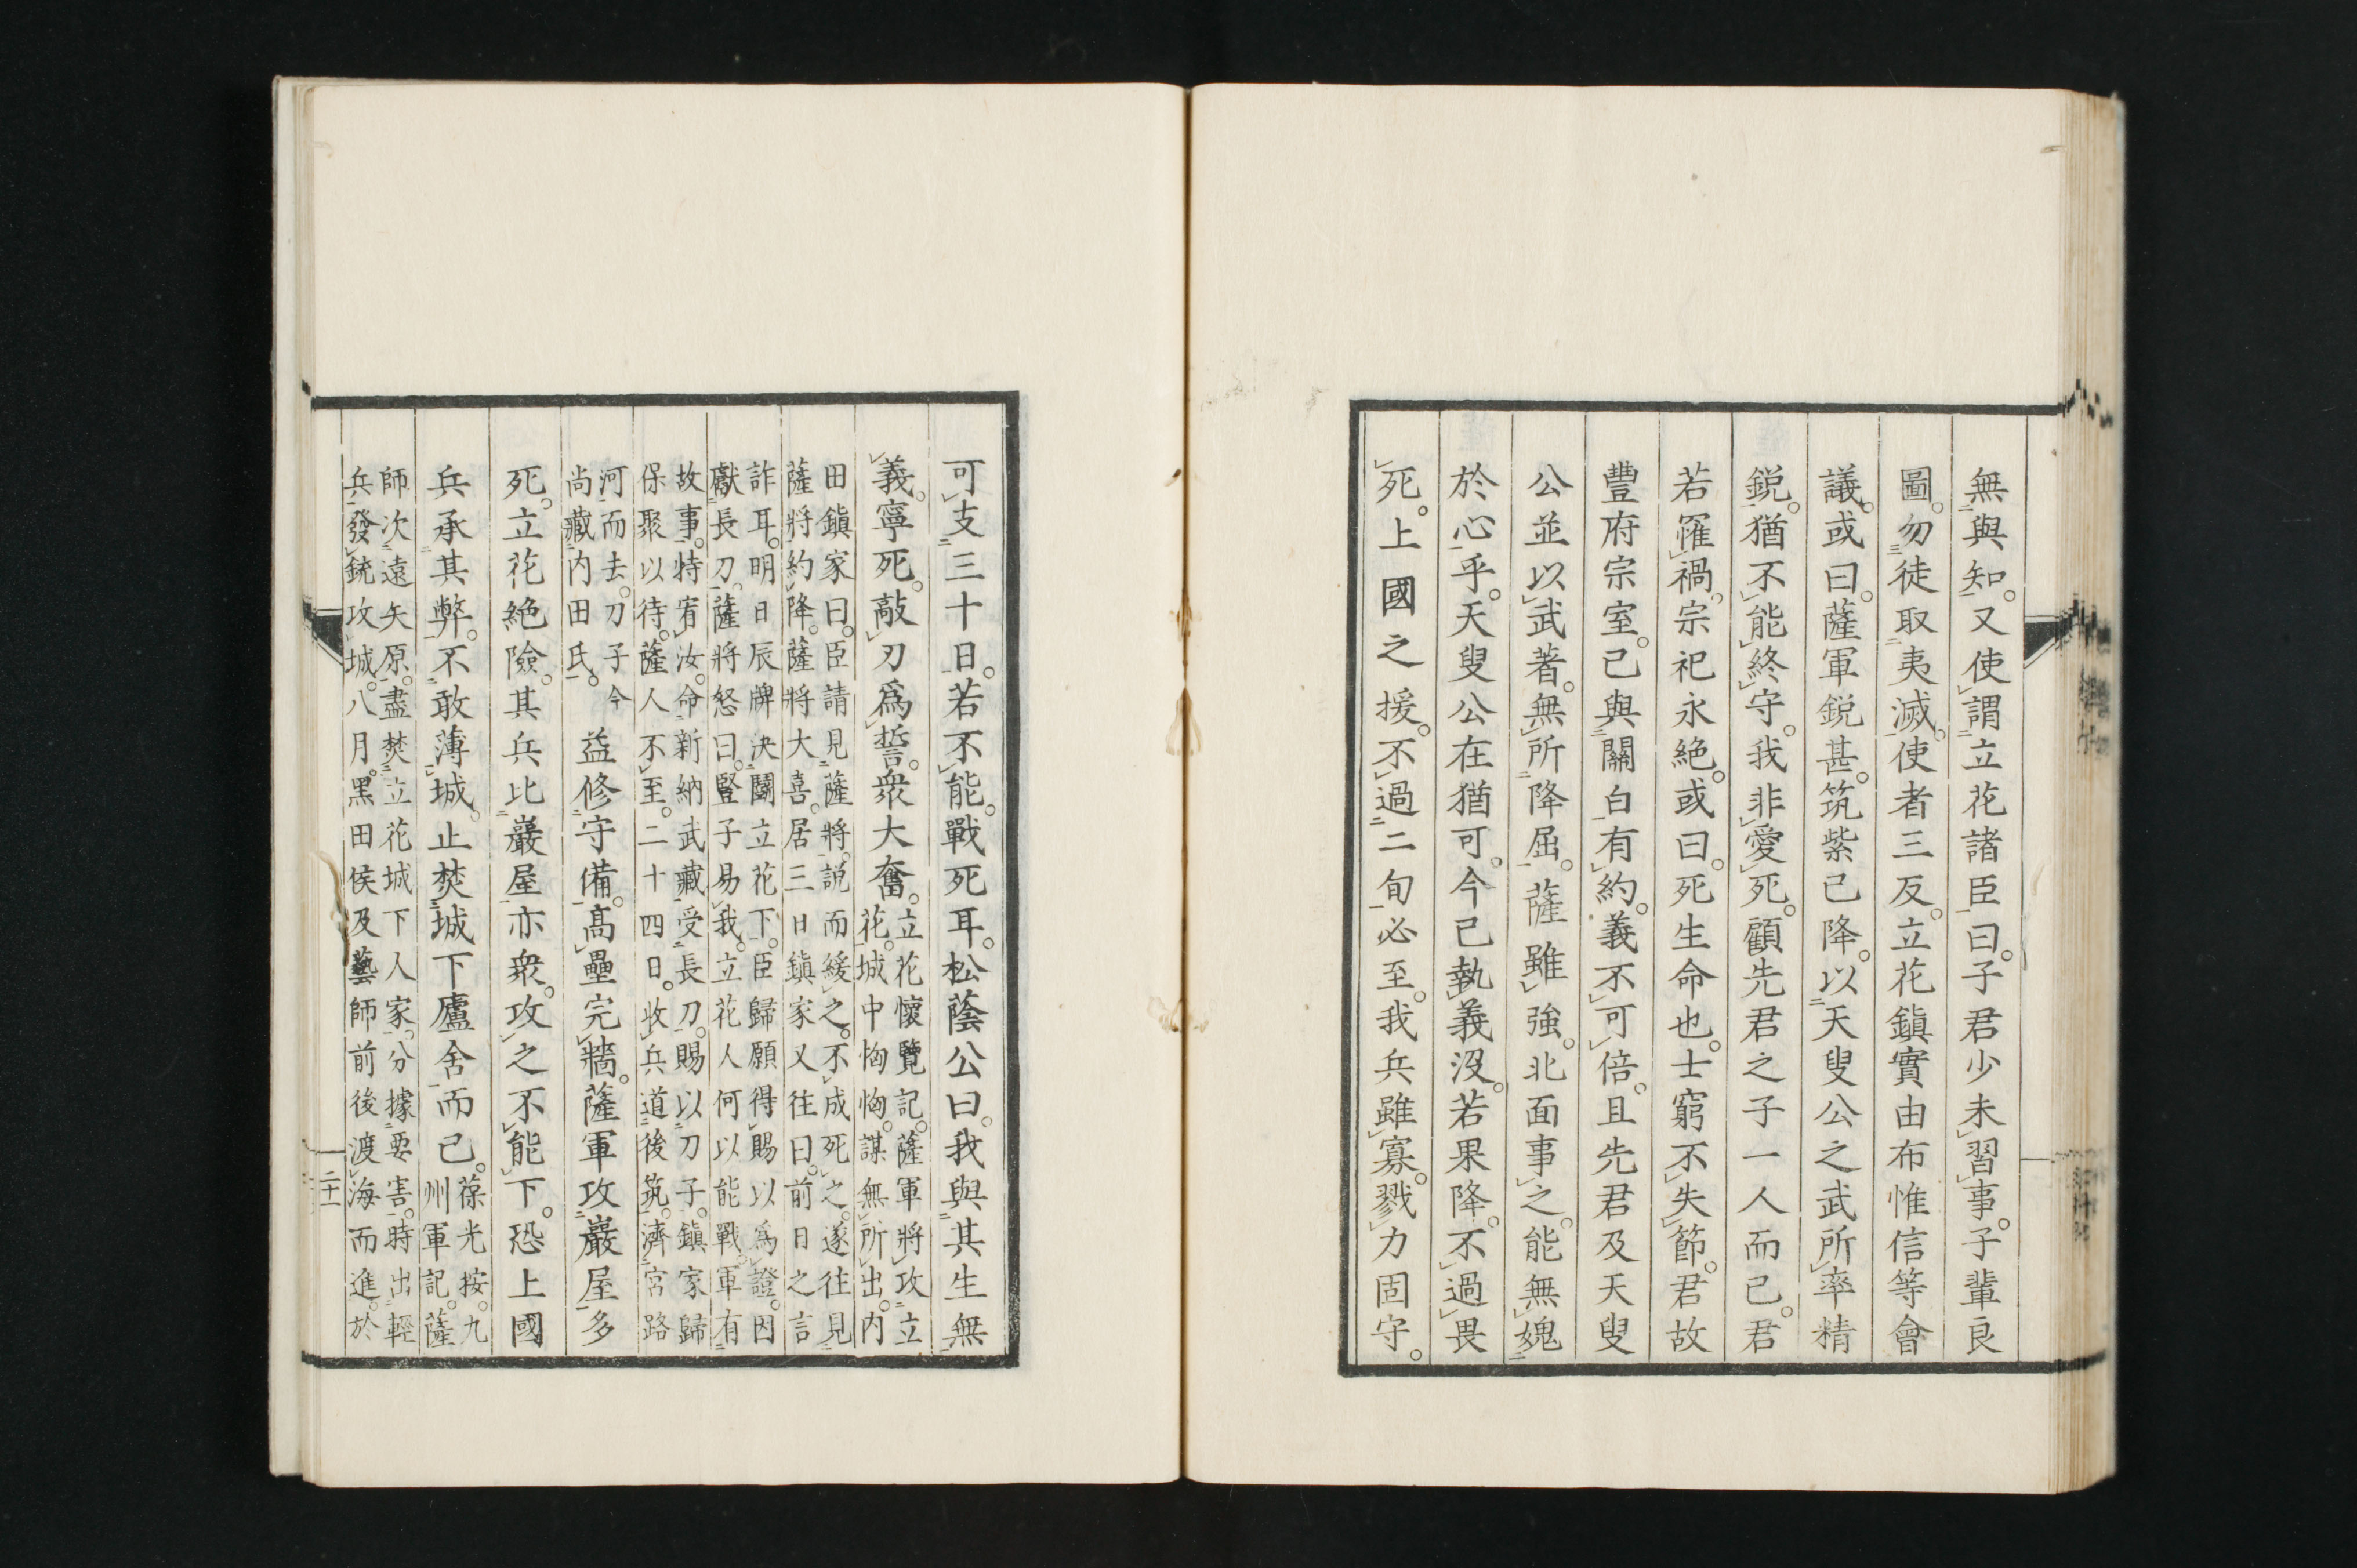 無與知。又使謂立花諸臣曰。子君少未習事。子輩良
圖。勿徒取夷滅。使者三反。立花鎮實由布惟信等會
議。或曰。薩軍鋭甚。筑紫已降。以天叟公之武所率精
鋭。猶不能終守。我非愛死。顧先君之子一人而已。君
若罹禍。宗祀永絶。或曰。死生命也。士窮不失節。君故
豐府宗室。已與關白有約。義不可倍。且先君及天叟
公並以武著。無所降屈。薩雖強。北面事之。能無媿
於心乎。天叟公在猶可。今已執義没。若果降。不過畏
死。上國之援。不過二旬必至。我兵雖寡。戮力固守。
可支三十日。若不能。戰死耳。松蔭公曰。我與其生無
義。寧死。敲刃爲誓。衆大奮。
立花懷覽記。薩軍將攻立
花。城中恟恟。謀無所出。内
田鎭家曰。臣請見薩將。説而緩之。不成死之。遂往見
薩將約降。薩將大喜。居三日鎭家又往曰。前日之言
詐耳。明日辰牌決鬪立花下。臣歸願得賜以爲證。因
獻長刀。薩將怒曰。豎子易我。立花人何以能戰。軍有
故事。特宥汝。命新納武藏受長刀。賜以刀子。鎭家歸
保聚以待。薩人不至。二十四日。收兵道後筑。濟宮路
河而去。刀子今
尚藏内田氏。
益修守備。高壘完牆。薩軍攻巖屋多
死。立花絶險。其兵比巖屋亦衆。攻之不能下。恐上國
兵承其弊。不敢薄城。止焚城下廬舍而已。
葆光按。九
州軍記。薩
師次遠矢原。盡焚立花城下人家。分據要害。時出輕
兵發銃攻城。八月。黑田侯及藝師前後渡海而進。於
二十一